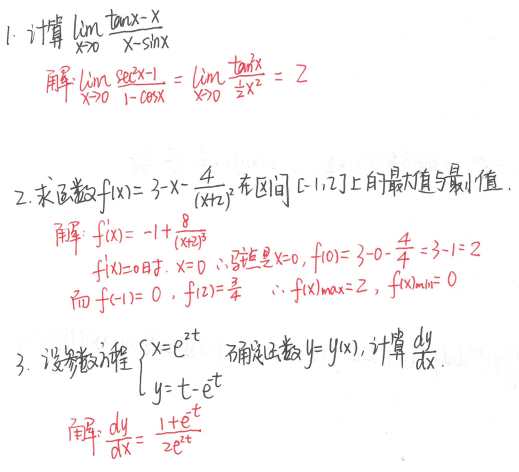 1. 计算 lim_{x→0} (tanx-x)/(x-sinx)
解: lim_{x→0} (sec²x-1)/(1-cosx) = lim_{x→0} (tan²x)/(½x²) = 2
2. 求函数f(x)=3-x-4/(x+2)² 在区间[-1,2]上的最大值与最小值.
解: f'(x)=-1+8/(x+2)³
f'(x)=0时. x=0 ∴驻点是x=0, f(0)=3-0-4/4=3-1=2
而 f(-1)=0, f(2)=3/4 ∴f(x)max=2, f(x)min=0
3. 设参数方程 { x=e^{2t} 确定函数y=y(x), 计算 dy/dx.
y=t-e^t
解: dy/dx = (1+e^{-t})/(2e^{2t})